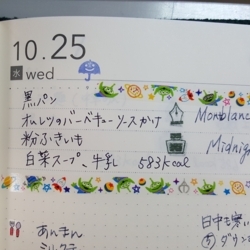 10.25
水 wed
黒パン
オムレツのバーベキューソースかけ
粉ふきいも
白菜スープ、牛乳 583kcal
Monblanc
Midnig
あんまん
日中も寒い